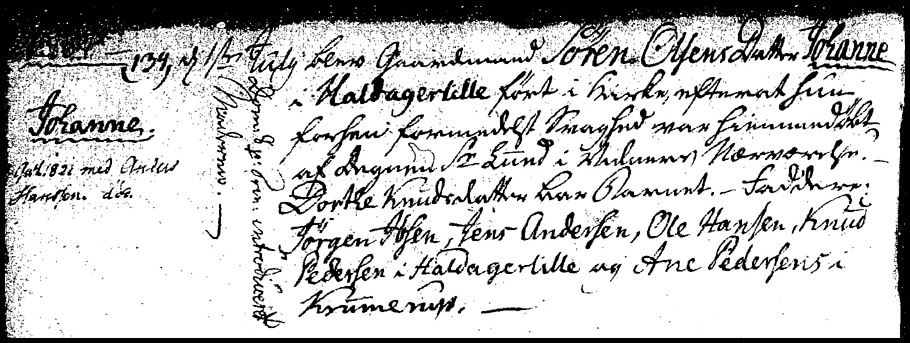 134, d 1ste July blev Gaardmand Sören Olsens Datter Johanne
i Haldagerlille fört i Kirke, efterat hun
forhen formedelst Svaghed var hiemmedöbt
af Degnen Sr Lund i Vidners Nærværelse. -
Dorthe Knudsdatter bar Barnet. - Faddere:
Jörgen Ibsen, Jens Andersen, Ole Hansen, Knud
Pedersen i Haldagerlille og Ane Pedersens i
Krummerup. -
Johanne.
1821 med Anders
Hansen. död.
introduceret